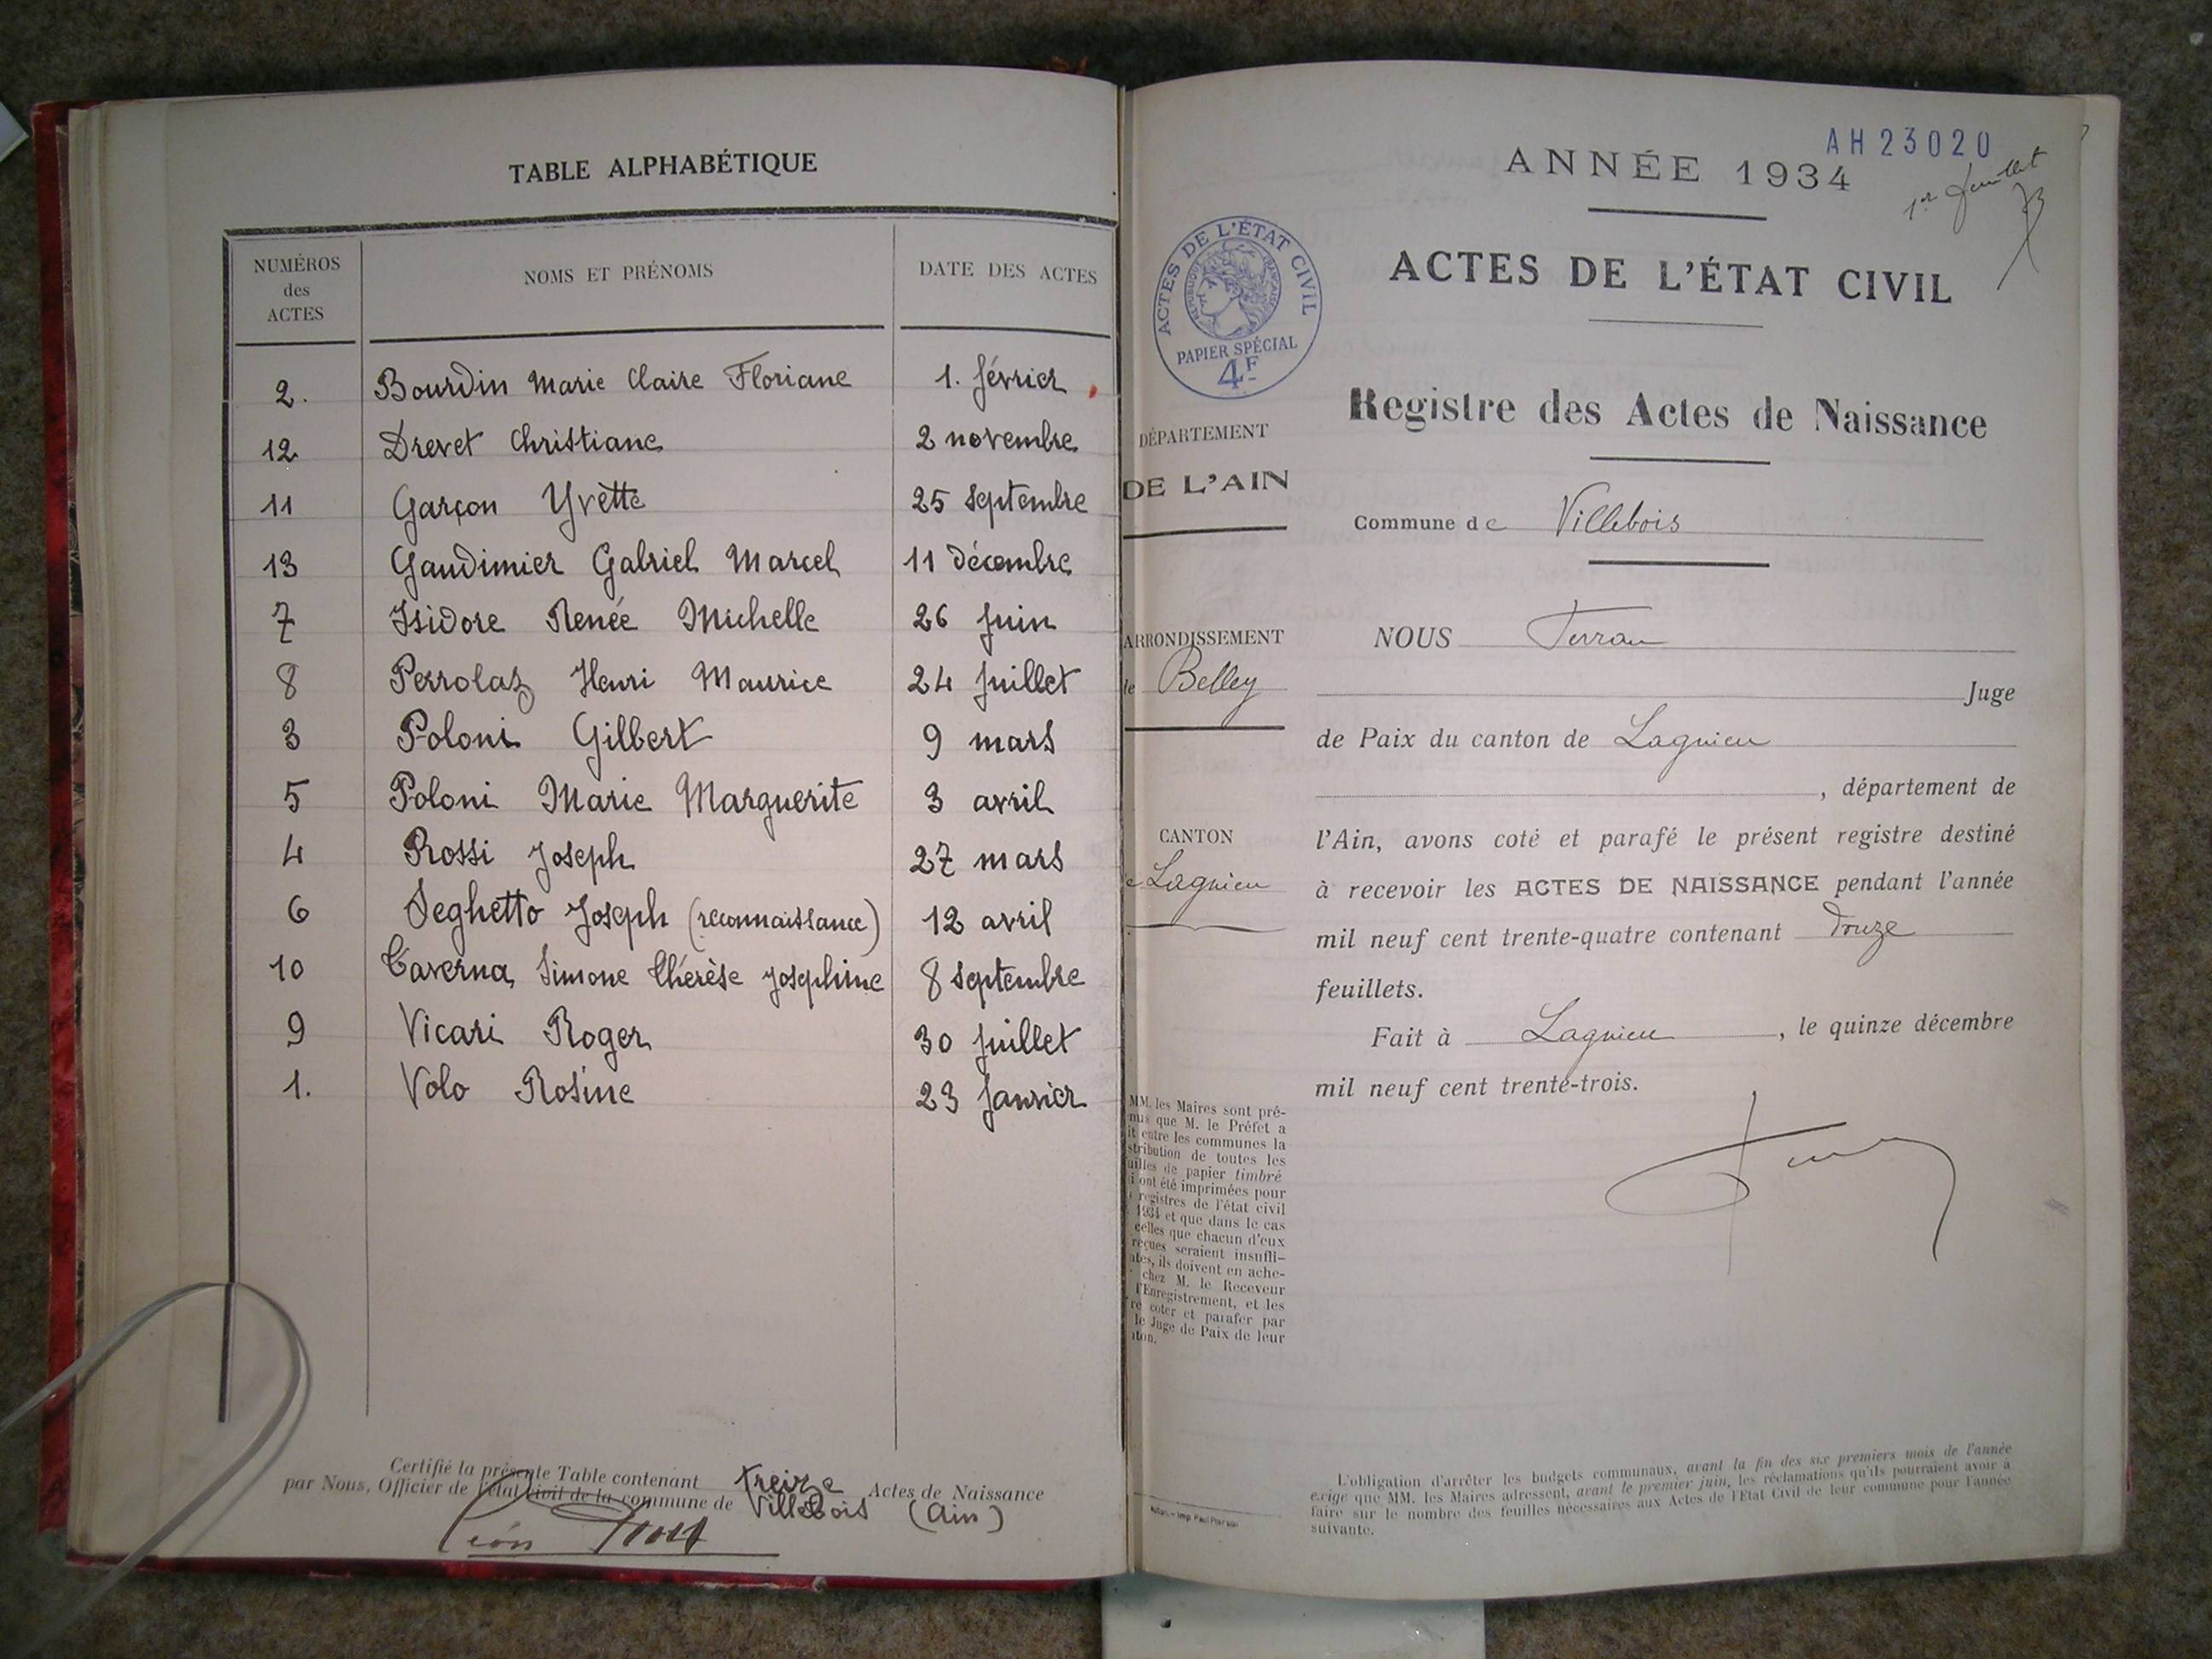 TABLE ALPHABÉTIQUE
NUMÉROS des ACTES NOMS ET PRÉNOMS DATE DES ACTES
2. Bourdin Marie Claire Floriane 1. février
12 Drevet Christiane 2 novembre
11 Garçon Yvette 25 septembre
13 Gaudimier Gabriel Marcel 11 décembre
7 Isidore Renée Michelle 26 juin
8 Perrolaz Henri Maurice 24 juillet
3 Poloni Gilbert 9 mars
5 Poloni Marie Marguerite 3 avril
4 Rossi Joseph 27 mars
6 Seghetto Joseph (reconnaissance) 12 avril
10 Taverna Simone Thérèse Joséphine 8 septembre
9 Vicari Roger 30 juillet
1. Volo Rosine 23 janvier
Certifié la présente Table contenant treize Actes de Naissance
par Nous, Officier de l'état civil de la commune de Villebois (Ain)
Léon
AH23020
ANNÉE 1934
1er feuillet
ACTES DE L'ÉTAT CIVIL
ACTES DE L'ÉTAT CIVIL
RÉPUBLIQUE FRANÇAISE
PAPIER SPÉCIAL
4F
Registre des Actes de Naissance
DÉPARTEMENT
DE L'AIN
Commune de Villebois
ARRONDISSEMENT
de Belley
CANTON
de Lagnieu
NOUS
Juge
de Paix du canton de Lagnieu
, département de
l'Ain, avons coté et parafé le présent registre destiné
à recevoir les ACTES DE NAISSANCE pendant l'année
mil neuf cent trente-quatre contenant douze
feuillets.
Fait à Lagnieu, le quinze décembre
mil neuf cent trente-trois.
MM. les Maires sont pré-
nus que M. le Préfet a
it entre les communes la
stribution de toutes les
uilles de papier timbré
i ont été imprimées pour
s registres de l'état civil
1934 et que dans le cas
celles que chacun d'eux
reçues seraient insuffi-
ntes, ils doivent en ache-
chez M. le Receveur
l'Enregistrement, et les
re coter et parafer par
le Juge de Paix de leur
nton.
L'obligation d'arrêter les budgets communaux, avant la fin des six premiers mois de l'année
exige que MM. les Maires adressent, avant le premier juin, les réclamations qu'ils pourraient avoir à
faire sur le nombre des feuilles nécessaires aux Actes de l'Etat Civil de leur commune pour l'année
suivante.
Imp. Paul Pierson